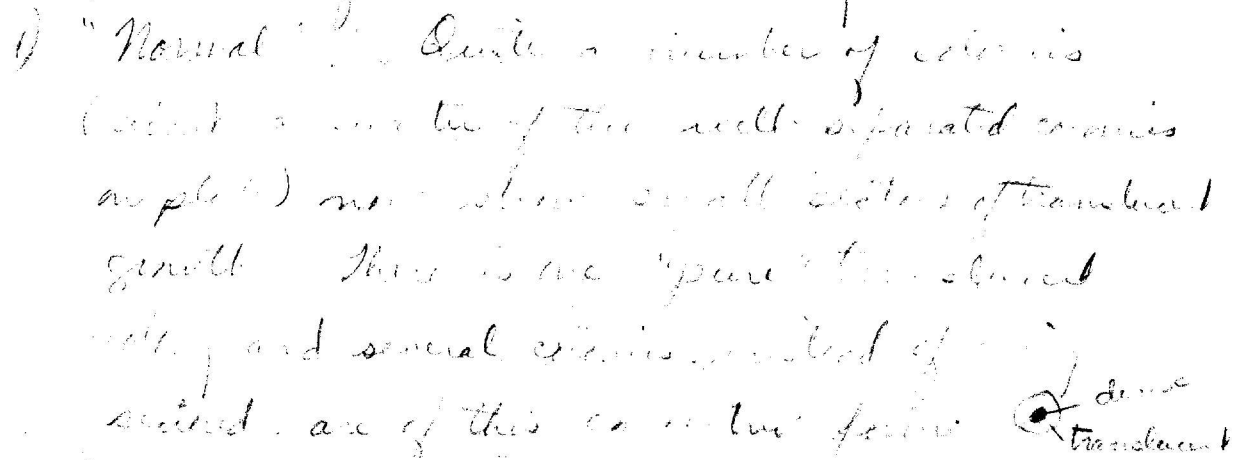 1) "Normal". Quite a number of colonies
( of the well separated colonies
on plate) now show small sectors of translucent
growth There is one "pure" translucent
colony and several colonies instead of being
sectored are of this form dense
translucent